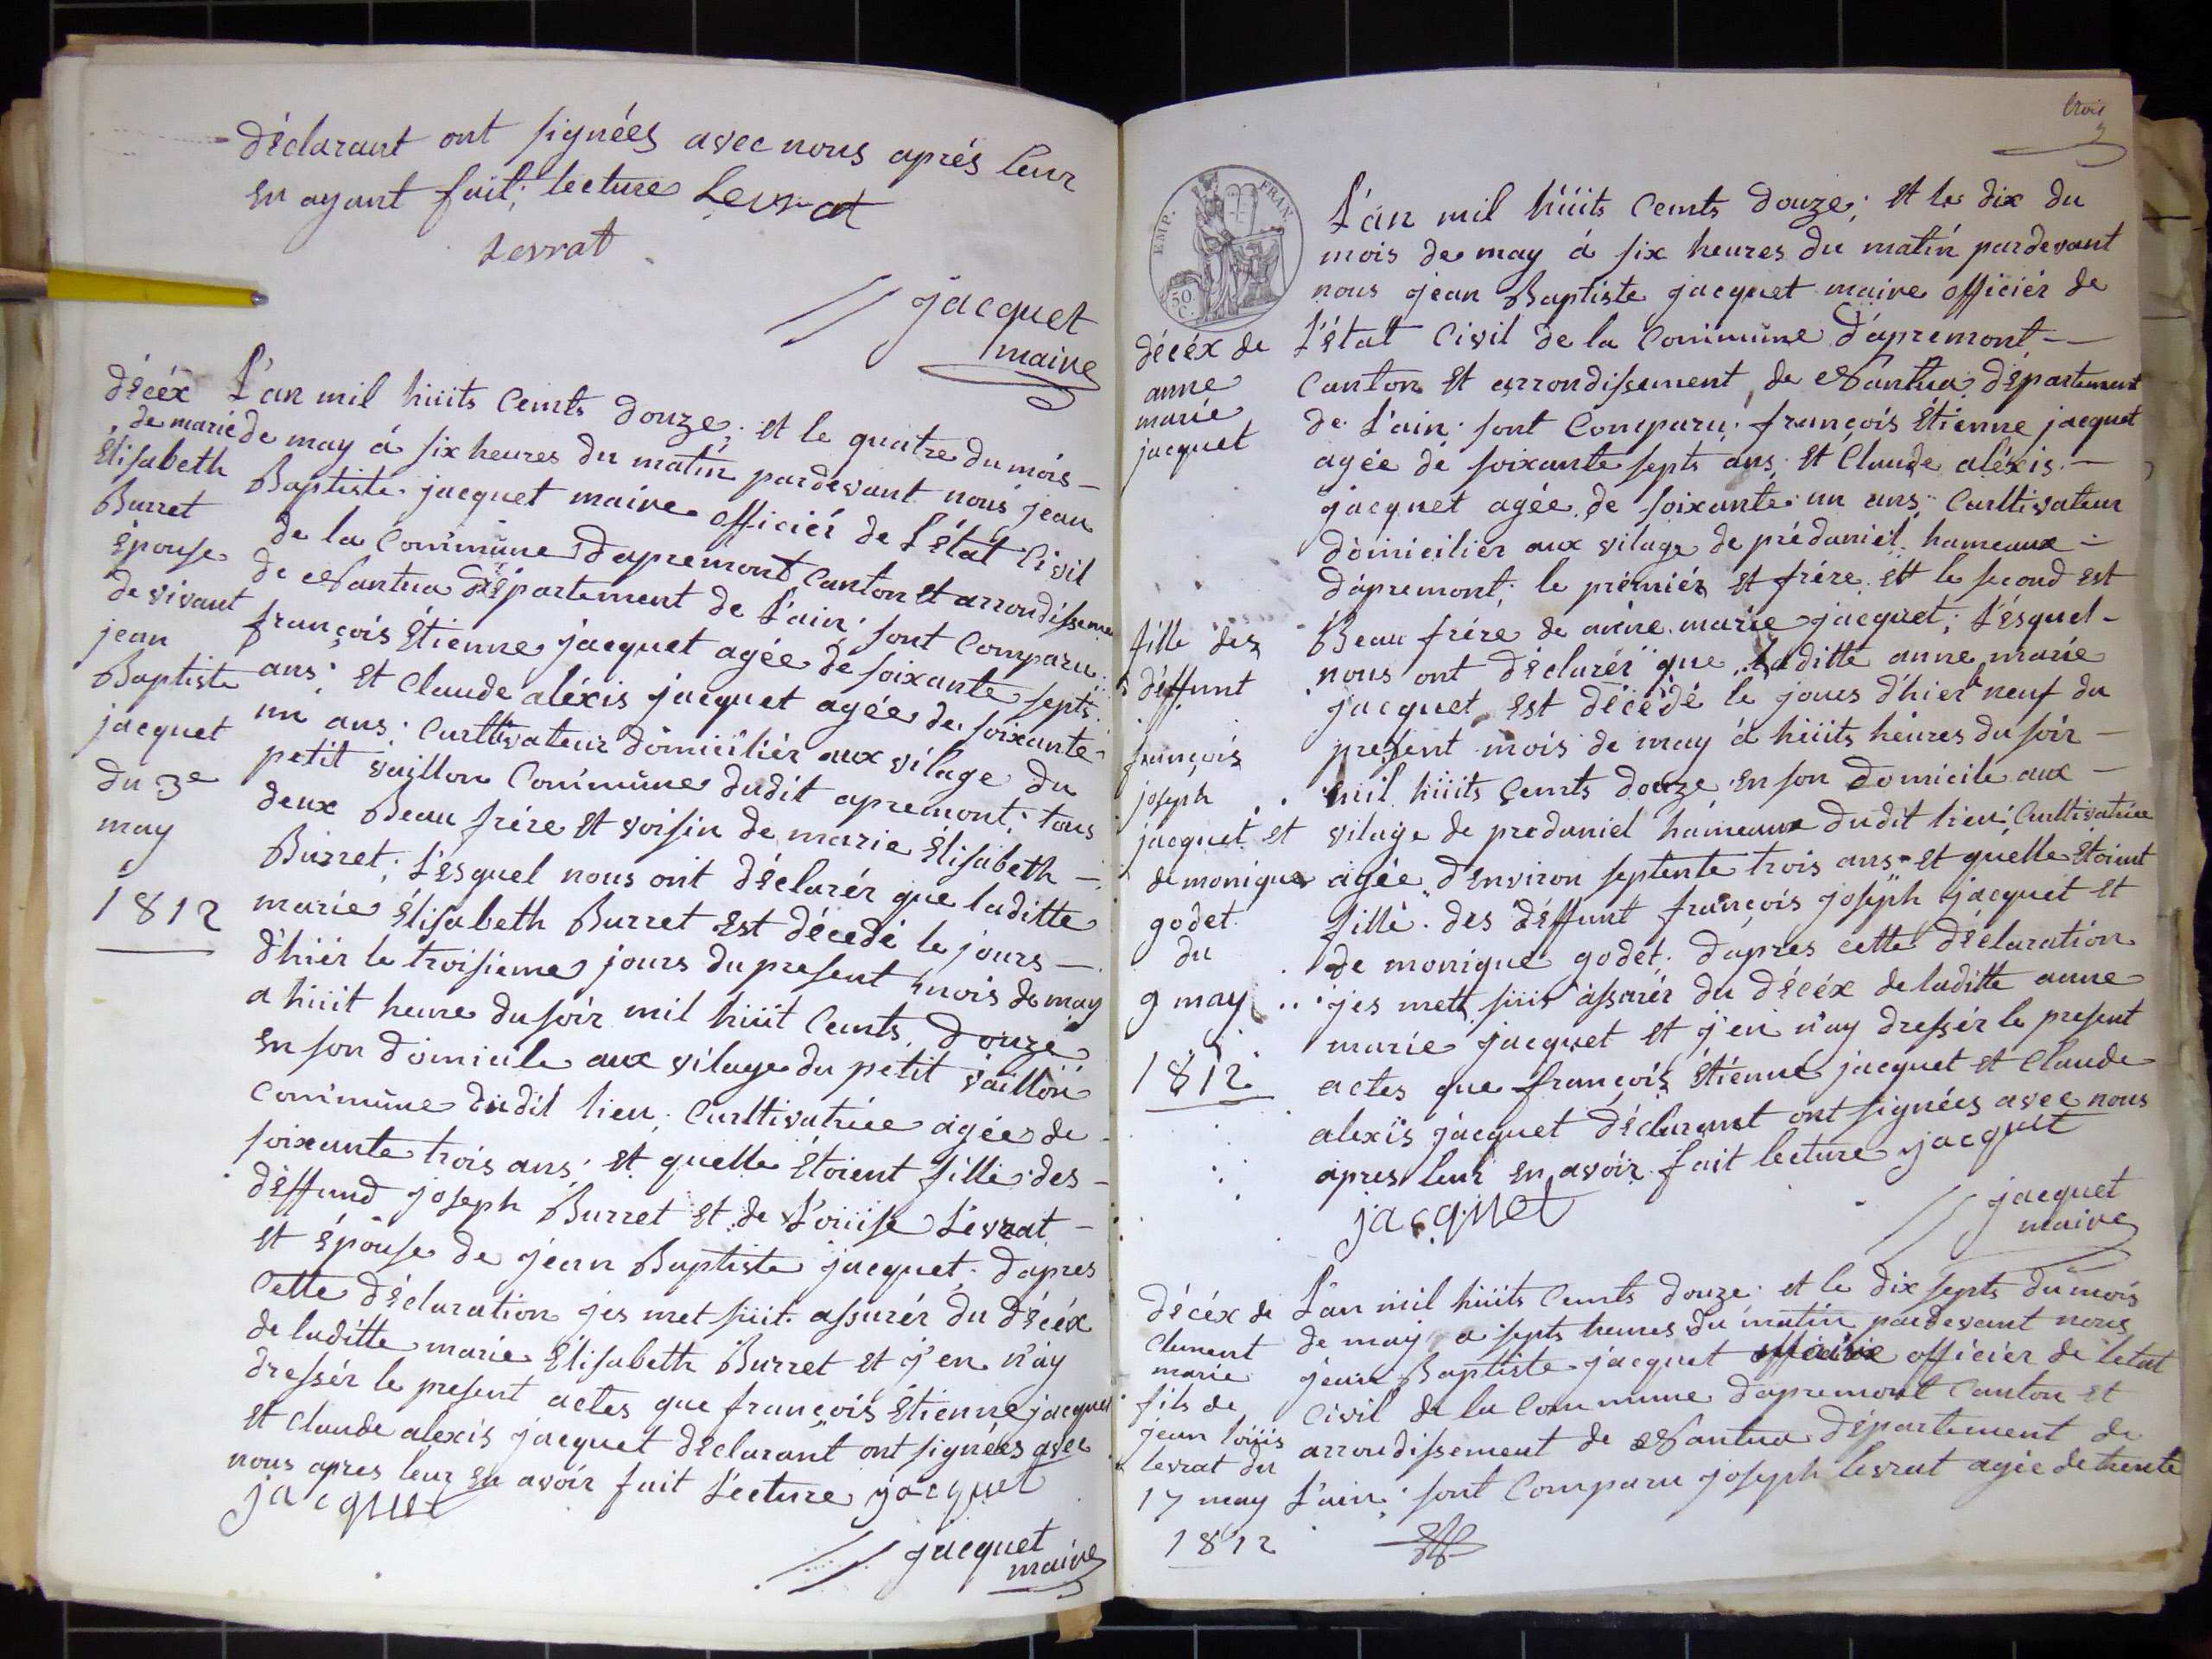 déclarant ont signées avec nous aprés leur
en ayant fait; lecture Levrat
Levrat
jacquet
maire
décéx
de marie
Elisabeth
Burret
épouse
de vivant
jean
Baptiste
jacquet
du 3e
may
1812
L'an mil hüits cents douze; et le quatre du mois -
de may á six heures du matin pardevant nous jean
Baptiste jacquet maire officiér de L'état Civil
de la Commüne d'apremont Canton et arrondisseme
de Nantua Département de L'ain; sont Comparu
françois Étienne jacquet agée de soixante septs
ans; et Claude aléxis jacquet agée de soixante
un ans; Curltivateur domiciliér aux vilage du
petit vaillon Commüne dudit apremont; tous
deux Beau frére et voisin de marie Élisabeth -
Burret; L'esquel nous ont déclarér que laditte
marie Élisabeth Burret Est décedé le jours -
d'hiér le troisieme jours du present mois de may
a hüit heure du soir mil hüit Cents, douze
en son domicile aux vilage du petit vaillon
commüne dudit lieu; Curltivatrice agée de
soixante trois ans; et quelle étoient fille des -
déffund joseph Burret et de L'oüise Levrat -
et épouse de jean Baptiste jacquet; d'apres
Cette déclaration jes met süit assurér du décéx
de laditte marie Élisabeth Burret et j'en n'ay
dressér le present actes que françois Étienne jacquet
et Claude alexis jacquet déclarant ont signées avec
nous apres leur en avoir fait L'ecture jacquet
jacquet
jacquet
maire
trois
EMP. FRAN.
50
C.
décéx de
anne
marie
jacquet
fille des
déffunt
françois
joseph
jacquet et
de monique
godet
du
9 may
1812
L'an mil hüits Cents douze; et le dix du
mois de may á six heures du matin pardevant
nous jean Baptiste jacquet maire officiér de
L'état Civil de la Commüne d'apremont -
Canton et arrondissement, de Nantua département
de L'ain; sont Comparu; françois Étienne jacquet
agée de soixante septs ans; et Claude aléxis -
jacquet agée de soixante un ans; Curltivateur
domiciliér aux vilage de prédaniel hameaux -
d'apremont; le prémiér et frére et le second est
Beau frére de anne marie jacquet; L'ésquel -
nous ont déclarér que laditte anne marie
jacquet est décédé le jours d'hier neuf du
present mois de may á hüits heures du soir -
mil hüits Cents douze en son domicile aux -
vilage de predaniel hameaux dudit lieu; Curltivatrice
agée d'environ septente trois ans et quelle étoient
fille des déffunt françois joseph jacquet et
de monique godet; d'apres cette déclaration
jes mett süis assurér du décéx de laditte anne
marie jacquet et j'en n'ay dressér le present
actes que françois Étienne jacquet et Claude
alexis jacquet déclarant ont signées avec nous
apres leur en avoir fait lecture jacquet
jacquet
jacquet
maire
décéx de
Clement
marie
fils de
jean loüis
levrat du
17 may
1812
L'an mil hüits Cents douze; et le dix septs du mois
de may a septs heures du matin pardevant nous
jean Baptiste jacquet officiér de l'etat
Civil de la Commune d'apremont Canton et
arrondissement de Nantua département de
L'ain; sont Comparu joseph levrat agée de trente